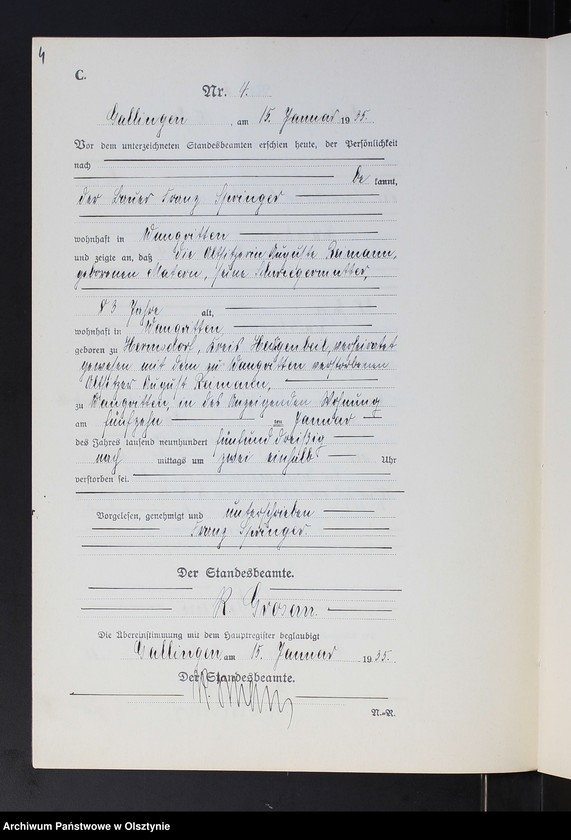 4
C.
Nr. 4.
Gallingen, am 15. Januar 1935.
Vor dem unterzeichneten Standesbeamten erschien heute, der Persönlichkeit
nach
be kannt,
der Bauer Franz Springer
wohnhaft in Wangritten
und zeigte an, daß die Altsitzerin Auguste Reimann,
geborenen Matern, seine Schwiegermutter,
83 Jahre alt,
wohnhaft in Wangritten,
geboren zu Hermsdorf, Kreis Heiligenbeil, verheiratet
gewesen mit dem zu Wangritten verstorbenen
Altsitzer August Reimann,
zu Wangritten, in des Anzeigenden Wohnung
am fünfzehn ten Januar
des Jahres tausend neunhundert fünfunddreißig
nach mittags um zwei einhalb Uhr
verstorben sei.
Vorgelesen, genehmigt und unterschrieben
Franz Springer.
Der Standesbeamte.
R.
Die Übereinstimmung mit dem Hauptregister beglaubigt
Gallingen, am 15. Januar 1935.
Der Standesbeamte.
N.-R.
Archiwum Państwowe w Olsztynie